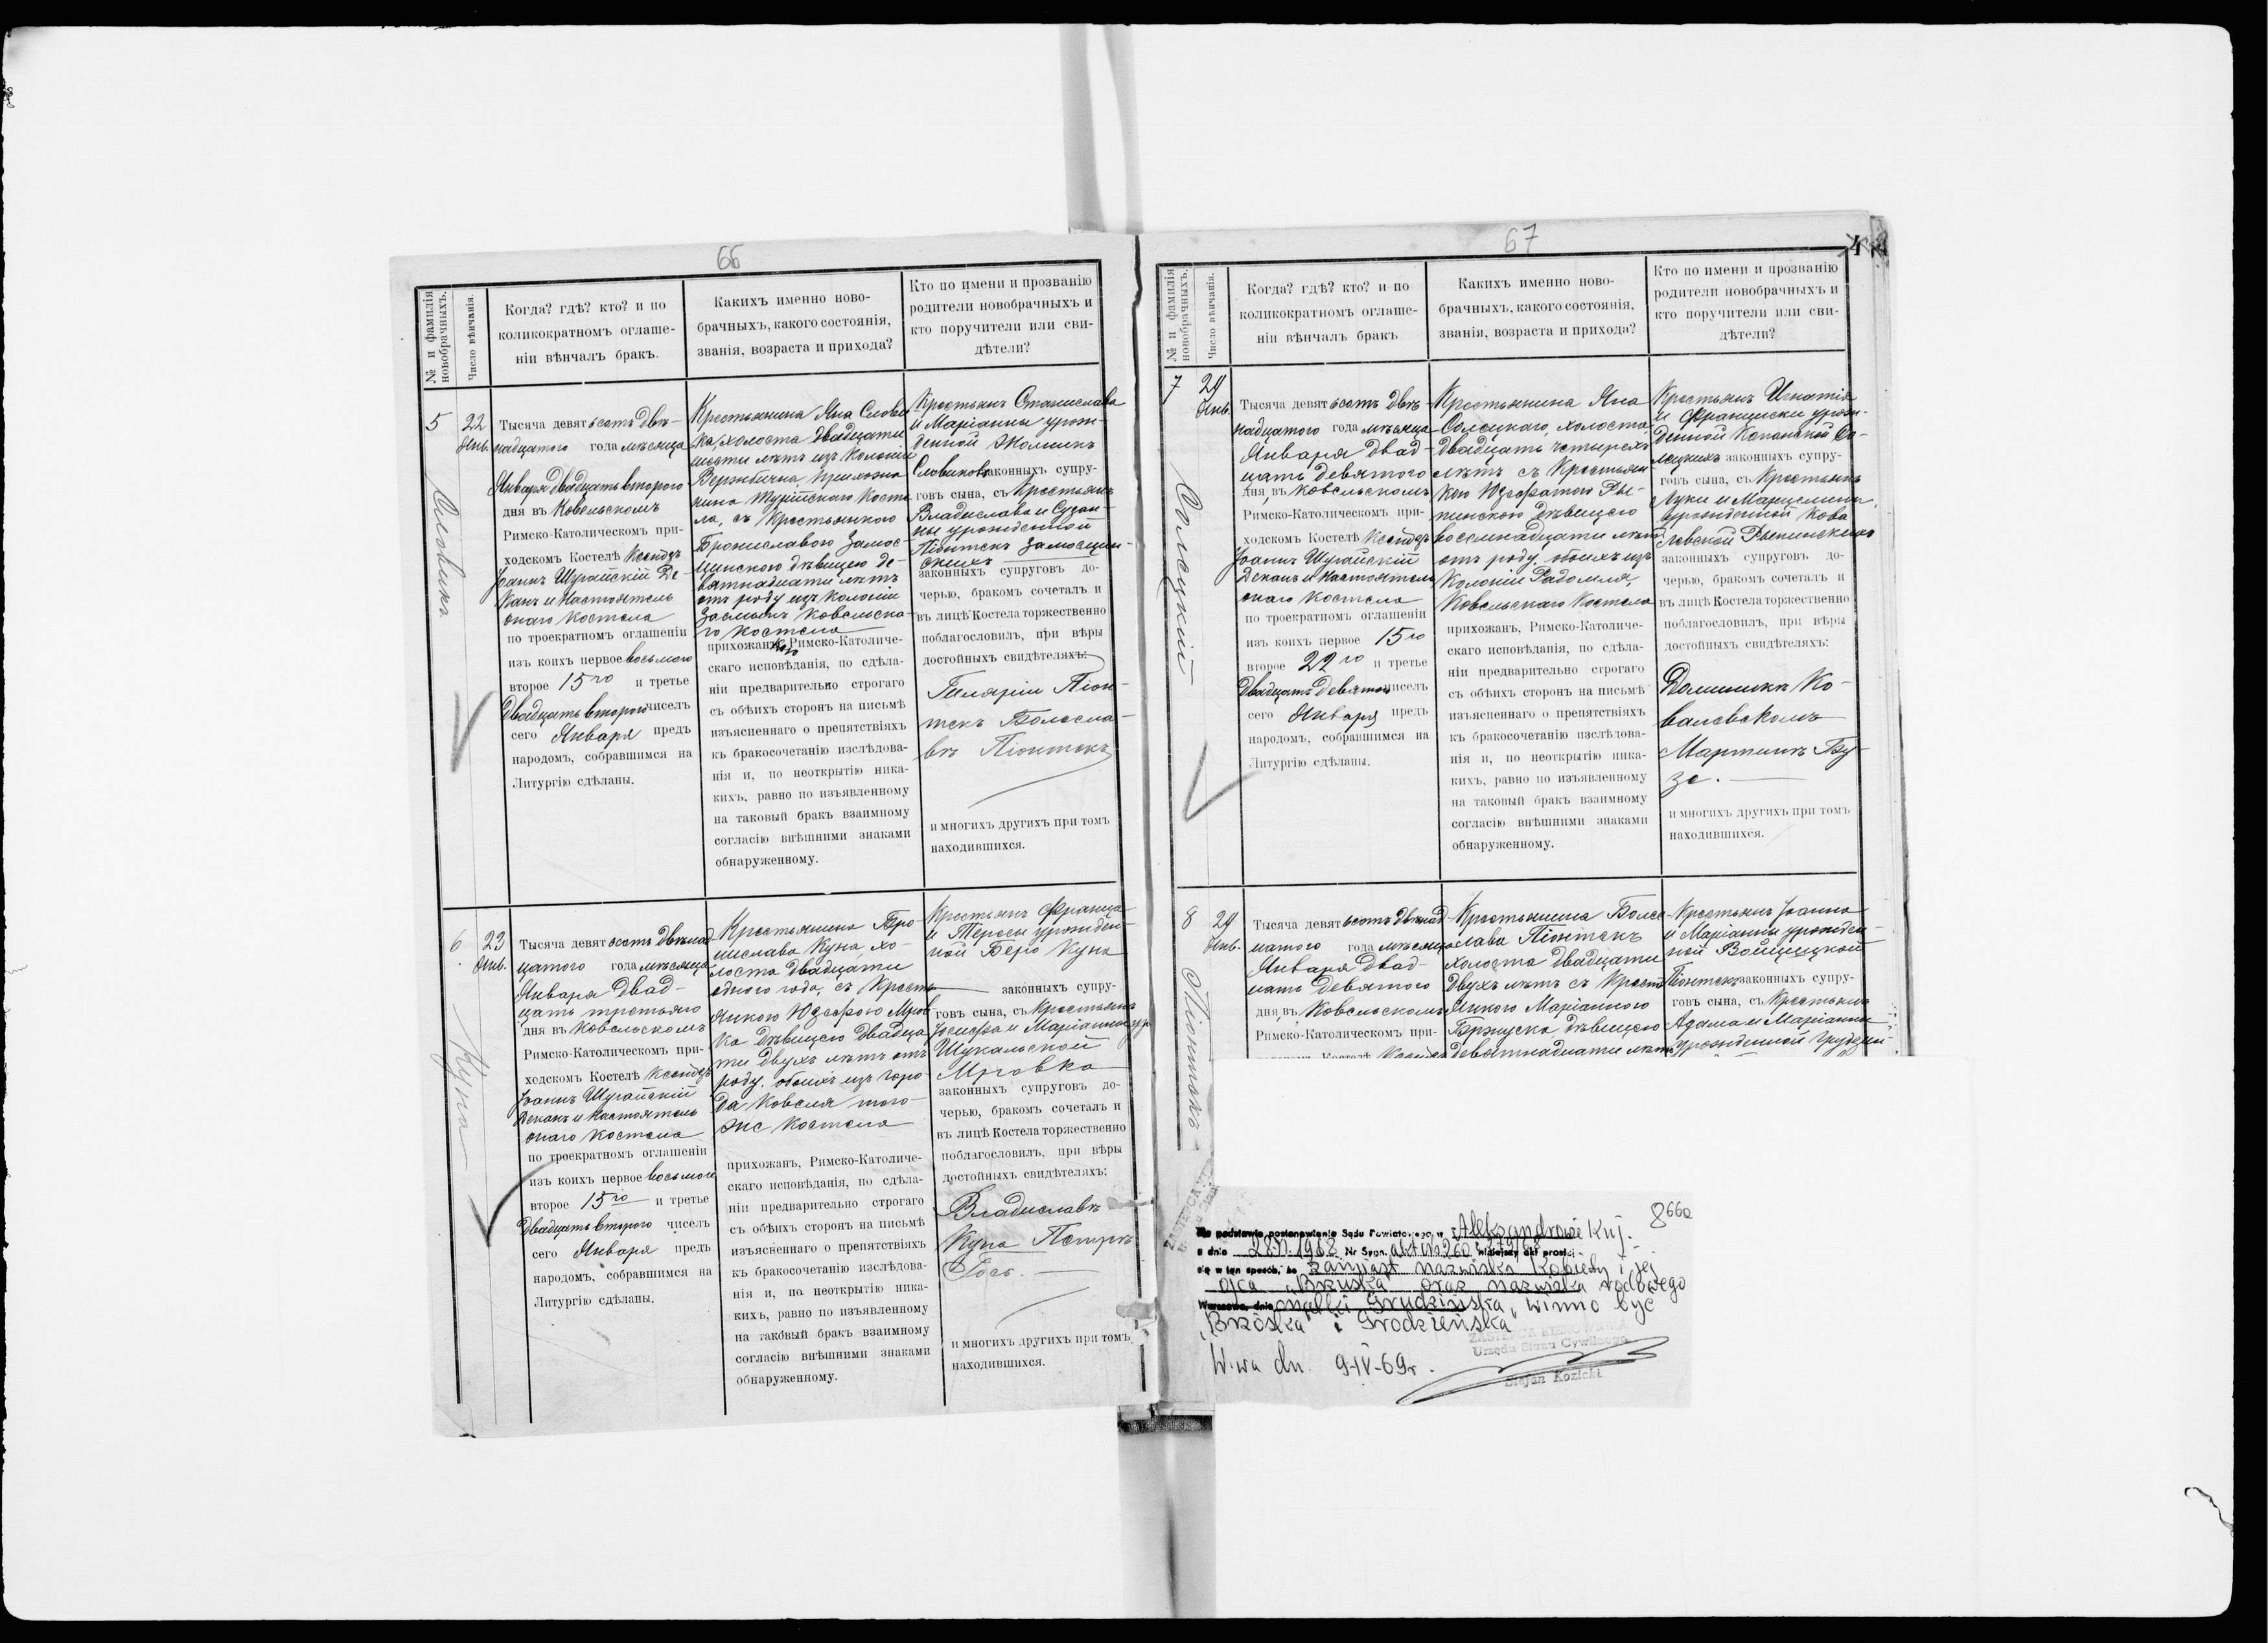 66
№ и фамилія новобрачныхъ.
Число вѣнчанія.
Когда? гдѣ? кто? и по
коликократномъ оглаше-
ніи вѣнчалъ бракъ.
Какихъ именно ново-
брачныхъ, какого состоянія,
званія, возраста и прихода?
Кто по имени и прозванію
родители новобрачныхъ и
кто поручители или сви-
дѣтели?
5
Словикъ
22
Янв.
Тысяча девятьсотъ двѣ-
надцатого года мѣсяца
Января двадцать второго
дня въ Ковельскомъ
Римско-Католическомъ при-
ходскомъ Костелѣ Ксендзъ
Іоаннъ Шугайскій Де-
канъ и Настоятель
онаго Костела
по троекратномъ оглашеніи
изъ коихъ первое восьмого
второе 15го и третье
двадцать второго чиселъ
сего Января предъ
народомъ, собравшимся на
Литургію сдѣланы.
Крестьянина Яна Слови-
ка, холоста двадцати
шести лѣтъ изъ Колоніи
Вержбична, прихожа-
нина Турійскаго Косте-
ла, съ Крестьянкою
Брониславою Замос-
цинскою дѣвицею де-
вятнадцати лѣтъ
отъ роду изъ Колоніи
Засмыкъ Ковельска-
го Костела
прихожан Римско-Католиче-
скаго исповѣданія, по сдѣла-
ніи предварительно строгаго
съ обѣихъ сторонъ на письмѣ
изъясненнаго о препятствіяхъ
къ бракосочетанію изслѣдова-
нія и, по неоткрытію ника-
кихъ, равно по изъявленному
на таковый бракъ взаимному
согласію внѣшними знаками
обнаруженному.
Крестьянъ Станислава
и Маріанны урож-
денной
Словиковъ законныхъ супру-
говъ сына, съ Крестьянъ
Владислава и Сузан-
ны урожденной
Піонтекъ Замосцин-
скихъ
законныхъ супруговъ до-
черью, бракомъ сочеталъ и
въ лицѣ Костела торжественно
поблагословилъ, при вѣры
достойныхъ свидѣтеляхъ:
Гиляріи Піон-
текъ Болесла-
въ Піонтекъ
и многихъ другихъ при томъ
находившихся.
6
Куна
23
Янв.
Тысяча девятьсотъ двѣнад-
цатого года мѣсяца
Января двад-
цать третьяго
дня въ Ковельскомъ
Римско-Католическомъ при-
ходскомъ Костелѣ Ксендзъ
Іоаннъ Шугайскій
Деканъ и Настоятель
онаго Костела
по троекратномъ оглашеніи
изъ коихъ первое восьмого
второе 15го и третье
двадцать второго чиселъ
сего Января предъ
народомъ, собравшимся на
Литургію сдѣланы.
Крестьянина Бро-
нислава Куна, хо-
лоста двадцати
одного года, съ Кресть-
янкою Юзефою Мров-
ка дѣвицею двадца-
ти двухъ лѣтъ отъ
роду, обоихъ изъ горо-
да Ковеля того-
же Костела
прихожанъ, Римско-Католиче-
скаго исповѣданія, по сдѣла-
ніи предварительно строгаго
съ обѣихъ сторонъ на письмѣ
изъясненнаго о препятствіяхъ
къ бракосочетанію изслѣдова-
нія и, по неоткрытію ника-
кихъ, равно по изъявленному
на таковый бракъ взаимному
согласію внѣшними знаками
обнаруженному.
Крестьянъ Франца
и Терезы урожден-
ной Беро Куна
законныхъ супру-
говъ сына, съ Крестьянъ
Іосифа и Маріанны ур.
Шукальской
Мровка
законныхъ супруговъ до-
черью, бракомъ сочеталъ и
въ лицѣ Костела торжественно
поблагословилъ, при вѣры
достойныхъ свидѣтеляхъ:
Владиславъ
Куна Петръ
и многихъ другихъ при томъ
находившихся.
67
4
№ и фамилія новобрачныхъ.
Число вѣнчанія.
Когда? гдѣ? кто? и по
коликократномъ оглаше-
ніи вѣнчалъ бракъ
Какихъ именно ново-
брачныхъ, какого состоянія,
званія, возраста и прихода?
Кто по имени и прозванію
родители новобрачныхъ и
кто поручители или сви-
дѣтели?
7
Солецкій
29
Янв.
Тысяча девятьсотъ двѣ-
надцатого года мѣсяца
Января двад-
цать девятого
дня, въ Ковельскомъ
Римско-Католическомъ при-
ходскомъ Костелѣ Ксендзъ
Іоаннъ Шугайскій
Деканъ и Настоятель
онаго Костела
по троекратномъ оглашеніи
изъ коихъ первое 15го
второе 22го и третье
двадцать девятого чиселъ
сего Января предъ
народомъ, собравшимся на
Литургію сдѣланы.
Крестьянина Яна
Солецкаго, холоста,
двадцать четырехъ
лѣтъ съ Крестьян-
кою Юзефатою Ры-
пинскою дѣвицею
восемнадцати лѣтъ
отъ роду, обоихъ изъ
Колоніи Радомля,
Ковельскаго Костела
прихожанъ, Римско-Католиче-
скаго исповѣданія, по сдѣла-
ніи предварительно строгаго
съ обѣихъ сторонъ на письмѣ
изъясненнаго о препятствіяхъ
къ бракосочетанію изслѣдова-
нія и, по неоткрытію ника-
кихъ, равно по изъявленному
на таковый бракъ взаимному
согласію внѣшними знаками
обнаруженному.
Крестьянъ Игнатія
и Франциски урож-
денной Копанской Со-
лецкихъ законныхъ супру-
говъ сына, съ Крестьянъ
Луки и Марцелины
урожденной Кова-
левской Рыпинскихъ
законныхъ супруговъ до-
черью, бракомъ сочеталъ и
въ лицѣ Костела торжественно
поблагословилъ, при вѣры
достойныхъ свидѣтеляхъ:
Доминикъ Ко-
валевскомъ
Мартинъ Бу-
зе.
и многихъ другихъ при томъ
находившихся.
8
Піонтекъ
29
Янв.
Тысяча девятьсотъ двѣнад-
цатого года мѣсяца
Января двад-
цать девятого
дня, въ Ковельскомъ
Римско-Католическомъ при-
Крестьянина Болес-
лава Піонтекъ
холоста двадцати
двухъ лѣтъ съ Кресть-
янкою Маріанною
Бржуска дѣвицею
девятнадцати лѣтъ
Крестьянъ Іоанна
и Маріанны урожден-
ной Войцицкой
Піонтекъ законныхъ супру-
говъ сына, съ Крестьянъ
Адама и Маріанны
урожденной Грудзин-
866a
Na podstawie postanowienia Sądu Powiatowego w Aleksandrowie Kuj.
z dnia 28.XI.1968 Nr Spr. niniejszy akt prostuje
się w ten sposób, że zamiast nazwiska kobiety i jej
ojca „Brzuska" oraz nazwiska rodowego
Warszawa, dnia matki Grudzińska" winno być
„Brzóska" i Grodzieńska"
ZASTĘPCA KIEROWNIKA
Urzędu Stanu Cywilnego
W-wa dn. 9-IV-69r.
Stefan Kozicki